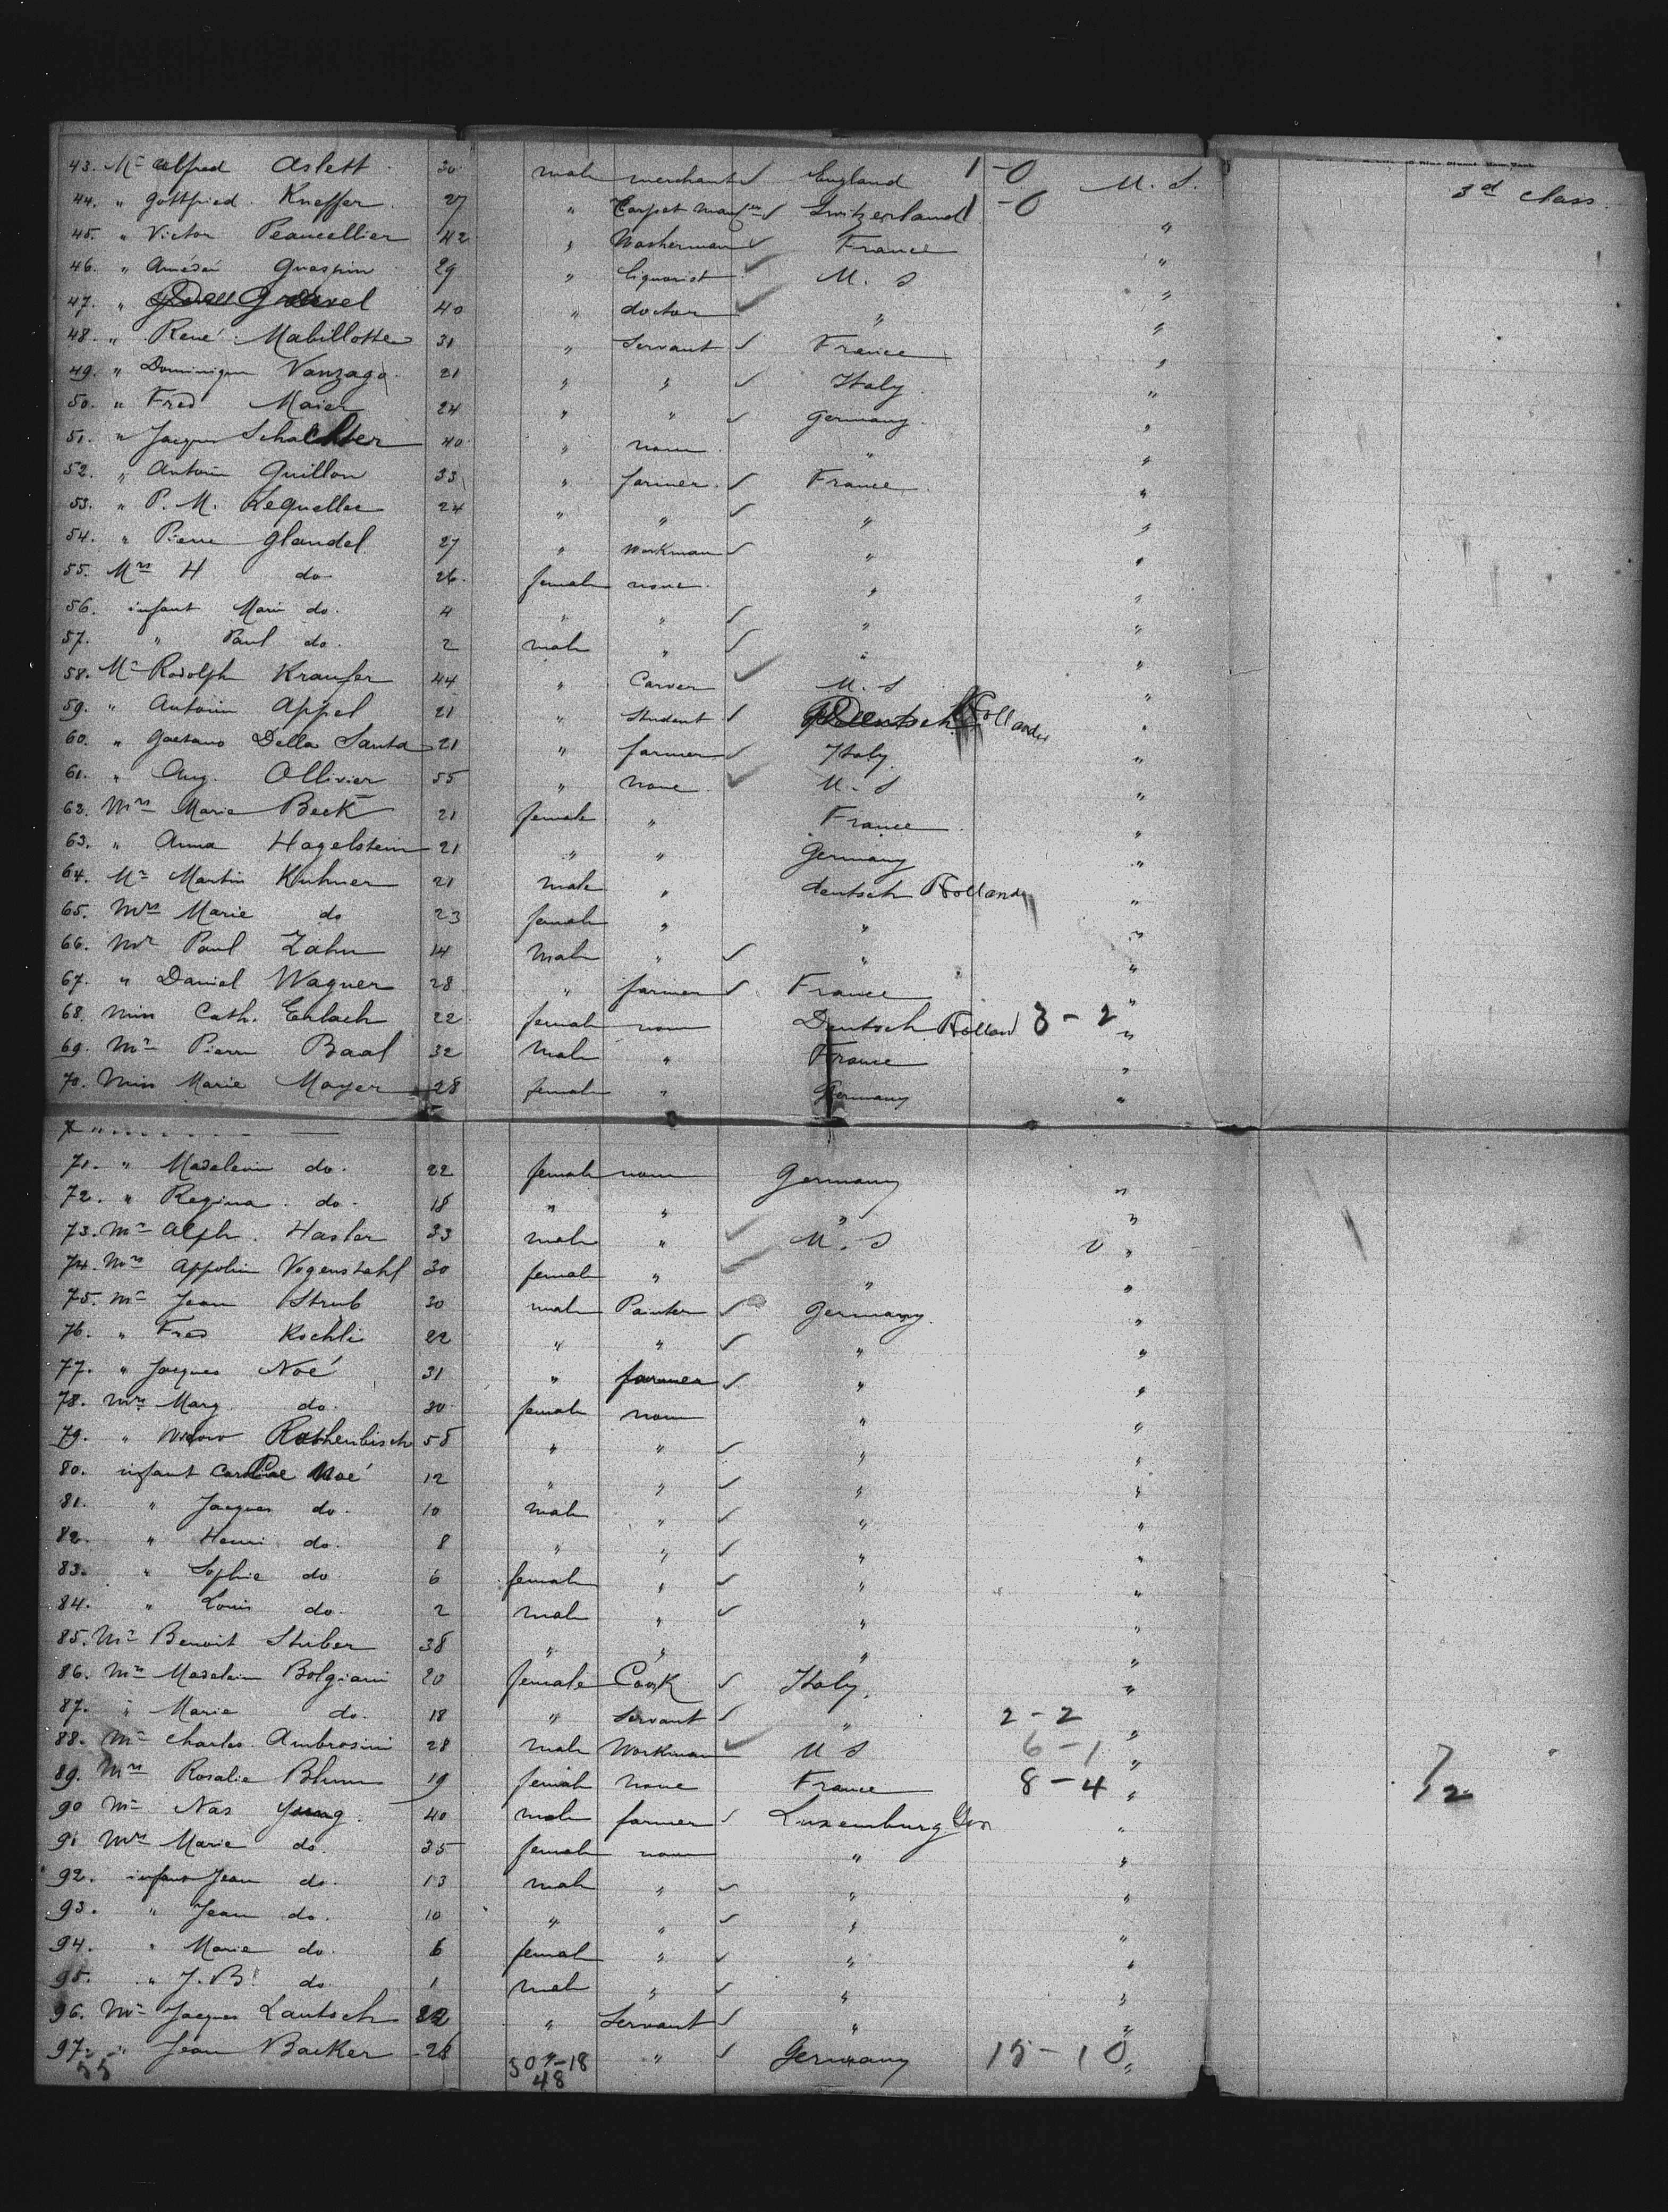 3d class.
43. Mr Alfred Aslett 30 male merchant England 1-0 U. S.
44. " Gottfried Kneffer 27 " Carpet Switzerland 1-0 "
45. " Victor Peaucellier 42 " Washerman France "
46. " Amédée 29 " liquorist U. S "
47. " 40 " doctor " "
48. " René Mabillotte 31 " Servant France "
49. " Dominique Vanzaga 21 " " Italy "
50. " Fred Maier 24 " " Germany "
51. " Jacques Schachter 40 " none " "
52. " Antoin Guillon 33 " farmer France "
53. " P. M. Lequeller 24 " " " "
54. " Pierre Glandel 27 " Workman " "
55. Mrs H do 26 female none " "
56. infant Marie do. 4 " " " "
57. " Paul do. 2 male " " "
58. Mr Rodolph Kraufer 44 " Carver U. S "
59. " Antoin Appel 21 " Student Deutsch Hollander "
60. " Gaetano Della Santa 21 " farmer Italy "
61. " Aug. Ollivier 55 " none U. S "
62. Mrs Marie Beck 21 female " France "
63. " Anna Hagelstein 21 " " Germany "
64. Mr Martin Kuhner 21 male " deutsch Hollande "
65. Mrs Marie do 23 female " " "
66. Mr Paul Zahn 14 Male " " "
67. " Daniel Wagner 28 " farmer France "
68. Miss Cath. Erlach 22 female none Deutsch Holland 3-2 "
69. Mr Pierre Baal 32 Male " France "
70. Miss Marie Mayer 28 female " Germany "
71. " Madeleine do. 22 female none Germany "
72. " Regina do. 18 " " " "
73. Mr Alph. Hasler 33 male " U. S "
74. Mrs Appolin Vogenstahl 30 female " " "
75. Mr Jean Strub 30 male Painter Germany "
76. " Fred Kochli 22 " " " "
77. " Jacques Noé 31 " farmer " "
78. Mrs Marg. do. 30 female none " "
79. " Widow Rothenbisch 55 " " " "
80. infant Caroline Noé 12 " " " "
81. " Jacques do. 10 male " " "
82. " Henri do. 8 " " " "
83. " Sophie do 6 female " " "
84. " Louis do. 2 male " " "
85. Mr Benoit Stuber 38 " " " "
86. Mrs Madelein Bolgiani 20 female Cook Italy "
87. " Marie do. 18 " Servant " 2-2 "
88. Mr Charles Ambrosini 28 male Workman U S 6-1 "
89. Mrs Rosalie Blum 19 female none France 8-4 "
90 Mr Nas Young 40 male farmer Luxemburg "
91 Mrs Marie do. 35 female none " "
92. infant Jean do. 13 male " " "
93. " Jean do. 10 " " " "
94. " Marie do. 6 female " " "
95. " J. B. do 1 male " " "
96. Mr Jacques Lautsch 22 " Servant " "
97. " Jean Backer 26 " " Germany 15-10 "
55 50-18
48